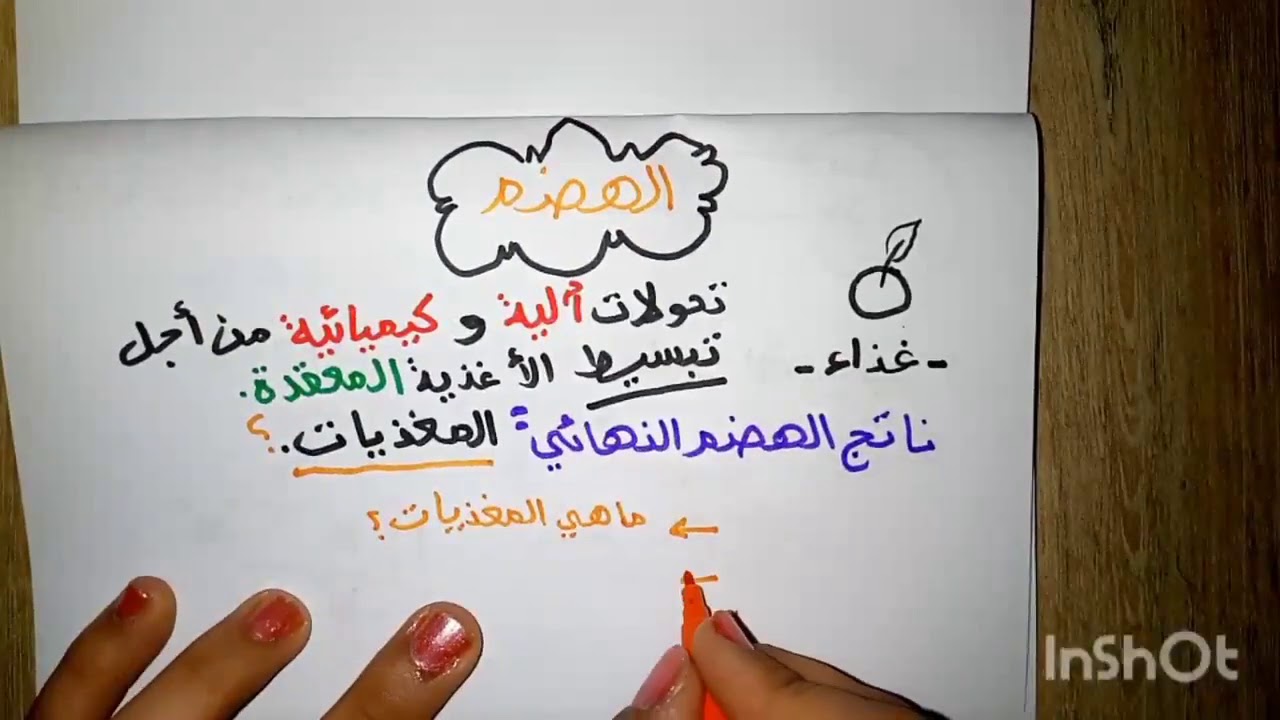 الهضم
تحولات آلية و كيميائية من أجل
تبسيط الأغذية المعقدة.
- غذاء -
ناتج الهضم النهائي: المغذيات.؟
← ماهي المغذيات؟
InShOt